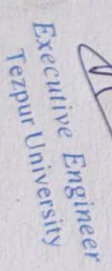 Executive Engineer
Tezpur University